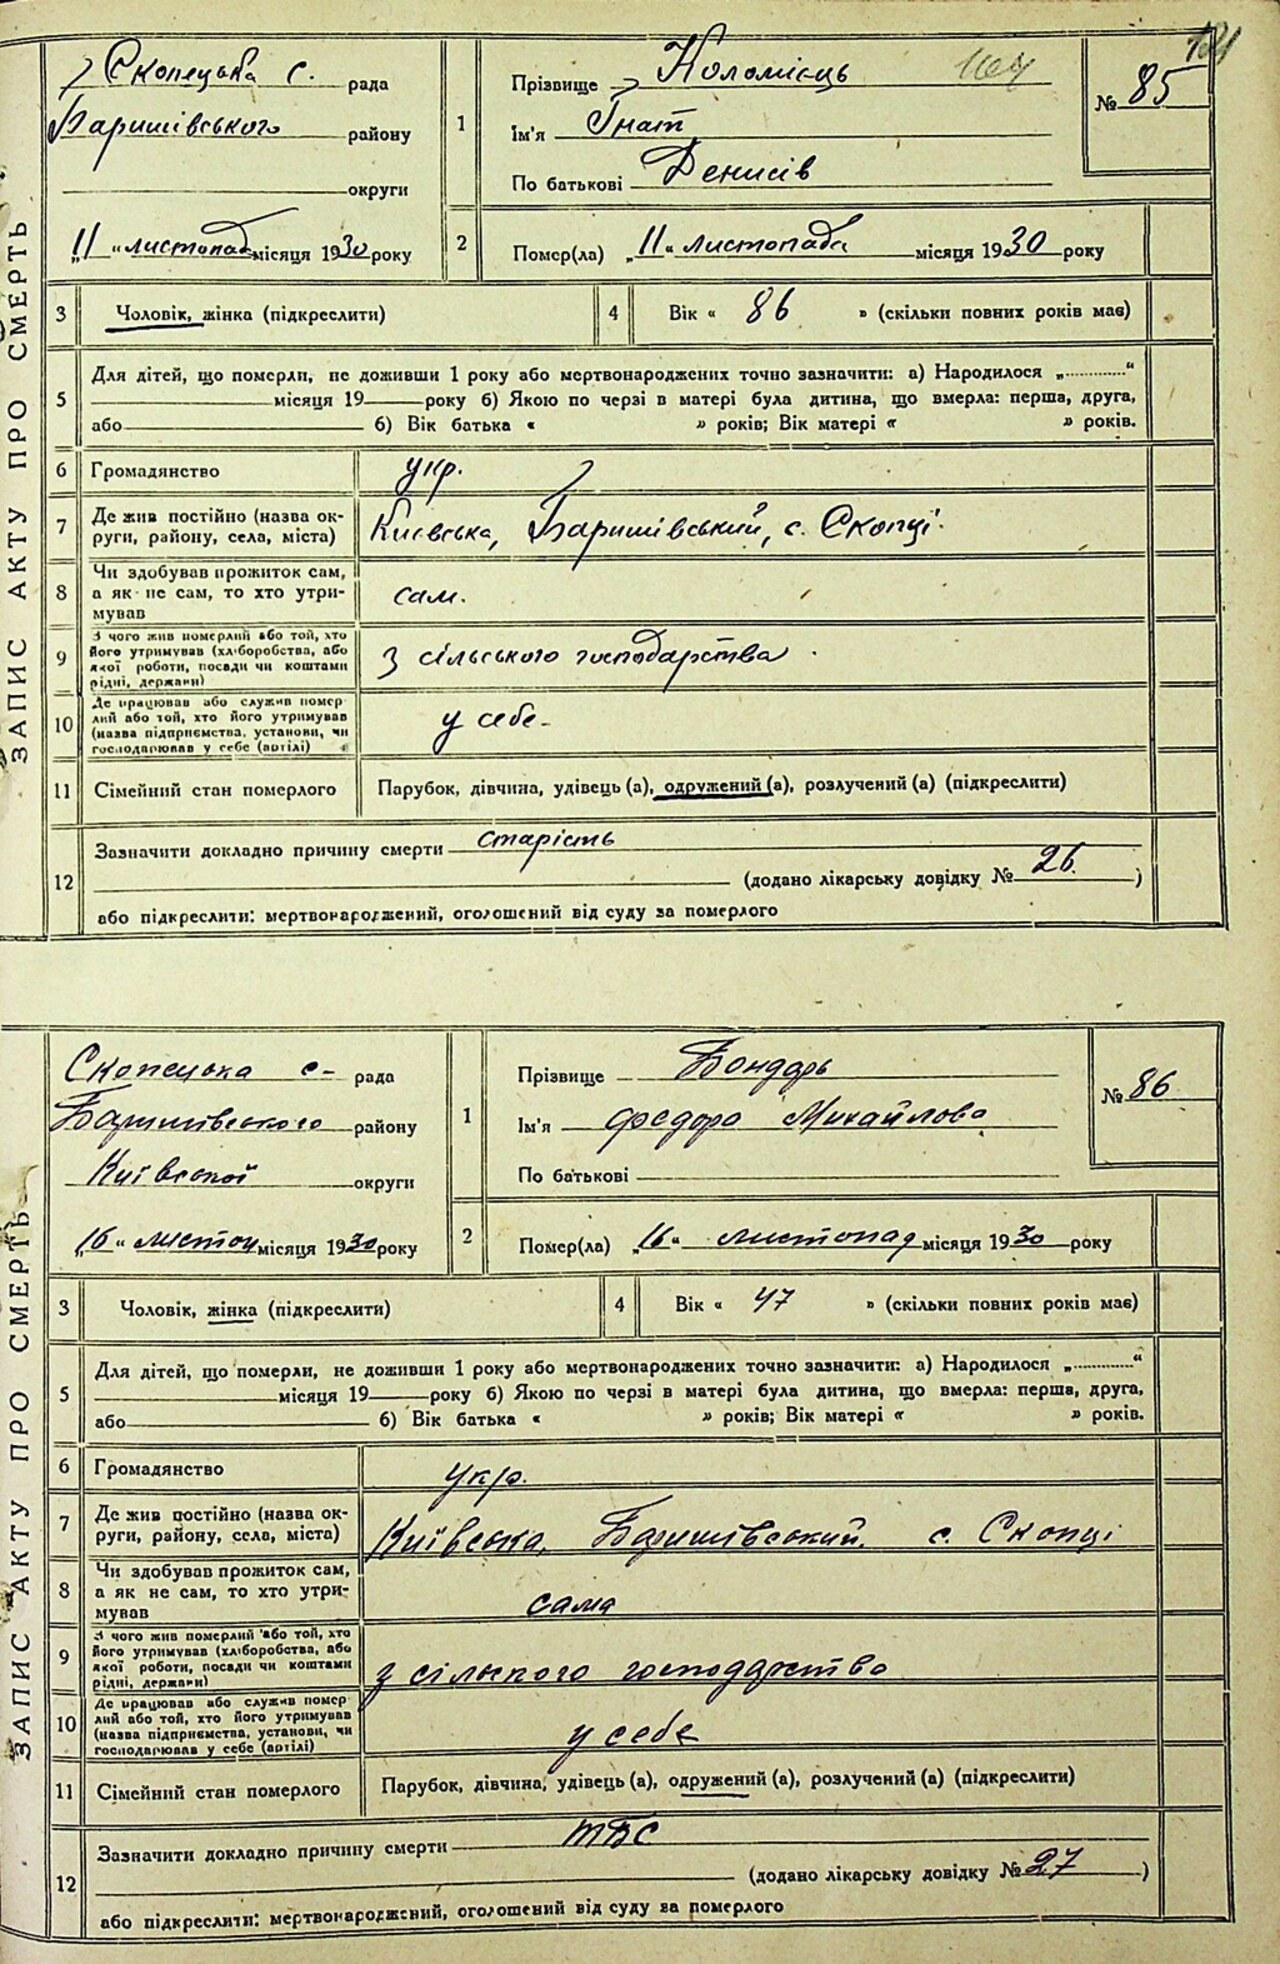 ЗАПИС АКТУ ПРО СМЕРТЬ
Скопецька с. рада
Баришівського району
округи
„11“ листопад місяця 1930 року
1
Прізвище Коломієць
Ім'я Гнат
По батькові Денисів
№ 85
2
Помер(ла) „11“ листопада місяця 1930 року
3 Чоловік, жінка (підкреслити)
4 Вік « 86 » (скільки повних років має)
5
Для дітей, що померли, не доживши 1 року або мертвонароджених точно зазначити: а) Народилося „............“
місяця 19 року б) Якою по черзі в матері була дитина, що вмерла: перша, друга,
або б) Вік батька « » років; Вік матері « » років.
6 Громадянство укр.
7 Де жив постійно (назва ок-
руги, району, села, міста)
Київська, Баришівський, с. Скопці.
8 Чи здобував прожиток сам,
а як не сам, то хто утри-
мував
сам.
9 З чого жив померлий або той, хто
його утримував (хліборобства, або
якої роботи, посади чи коштами
рідні, держави)
з сільського господарства
10 Де працював або служив помер
лий або той, хто його утримував
(назва підприємства, установи, чи
господарював у себе (артілі)
у себе-
11 Сімейний стан померлого Парубок, дівчина, удівець (а), одружений (а), розлучений (а) (підкреслити)
12
Зазначити докладно причину смерти старість
(додано лікарську довідку № 26. )
або підкреслити: мертвонароджений, оголошений від суду за померлого
ЗАПИС АКТУ ПРО СМЕРТЬ
Скопецька с- рада
Баришівського району
Київської округи
„16“ листоп місяця 1930 року
1
Прізвище Бондарь
Ім'я Федора Михайлова
По батькові
№ 86
2
Помер(ла) „16“ листопад місяця 1930 року
3 Чоловік, жінка (підкреслити)
4 Вік « 47 » (скільки повних років має)
5
Для дітей, що померли, не доживши 1 року або мертвонароджених точно зазначити: а) Народилося „............“
місяця 19 року б) Якою по черзі в матері була дитина, що вмерла: перша, друга,
або б) Вік батька « » років; Вік матері « » років.
6 Громадянство укр.
7 Де жив постійно (назва ок-
руги, району, села, міста)
Київська, Баришівський. с. Скопці
8 Чи здобував прожиток сам,
а як не сам, то хто утри-
мував
сама
9 З чого жив померлий або той, хто
його утримував (хліборобства, або
якої роботи, посади чи коштами
рідні, держави)
з сільского господарство
10 Де працював або служив помер
лий або той, хто його утримував
(назва підприємства, установи, чи
господарював у себе (артілі)
у себе
11 Сімейний стан померлого Парубок, дівчина, удівець (а), одружений (а), розлучений (а) (підкреслити)
12
Зазначити докладно причину смерти ТБС
(додано лікарську довідку № 27 )
або підкреслити: мертвонароджений, оголошений від суду за померлого